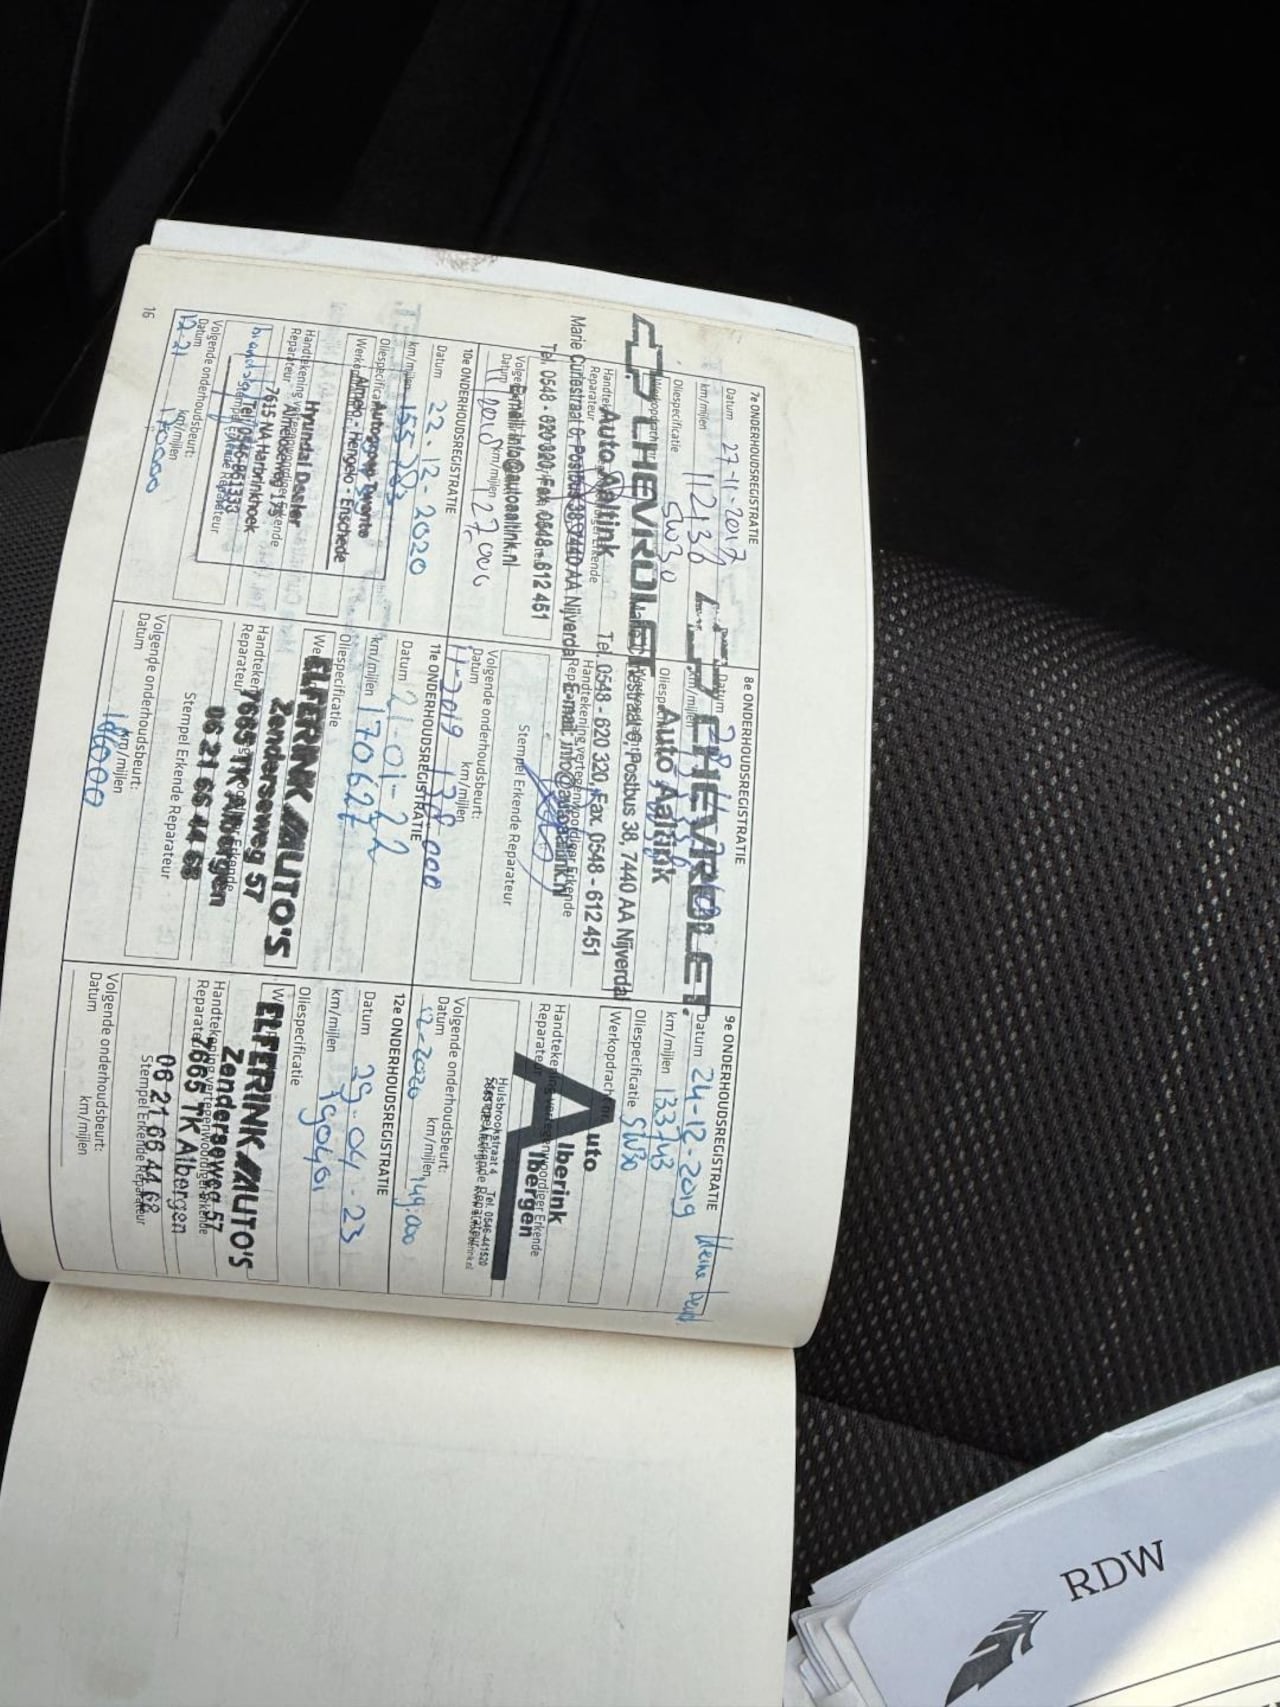 7e ONDERHOUDSREGISTRATIE
Datum 27-11-2017
km/mijlen
Oliespecificatie SW30
CHEVROLET
Auto Aaltink
Marie Curiestraat 6, Postbus 38, 7440 AA Nijverdal
Tel. 0548 - 620 320, Fax. 0548 - 612 451
E-mail: info@autoaaltink.nl
Datum km/mijlen
8e ONDERHOUDSREGISTRATIE
Datum
km/mijlen
CHEVROLET
Auto Aaltink
Postbus 38, 7440 AA Nijverdal
Tel. 0548 - 620 320, Fax. 0548 - 612 451
E-mail: info@autoaaltink.nl
Handtekening vertegenwoordiger Erkende
Stempel Erkende Reparateur
Volgende onderhoudsbeurt:
Datum km/mijlen
11-2019
9e ONDERHOUDSREGISTRATIE
Datum 24-12-2019
km/mijlen 133743
Oliespecificatie SW30
Werkopdracht
Handtekening vertegenwoordiger Erkende
Reparateur
Auto
Alberink
Albergen
Hulsbrookstraat 4 Tel. 0546-441520
Volgende onderhoudsbeurt:
Datum km/mijlen
12-2020 149.000
10e ONDERHOUDSREGISTRATIE
Datum 22-12-2020
km/mijlen 155 283
Autogroep Twente
Almelo - Hengelo - Enschede
Handtekening vertegenwoordiger Erkende
Reparateur
Hyundai Dealer
Almeloseweg 175
7615 NA Harbrinkhoek
Tel. 0546-861333
Volgende onderhoudsbeurt:
Datum km/mijlen
12-21 170000
11e ONDERHOUDSREGISTRATIE
Datum 21-01-22
km/mijlen 170627
Oliespecificatie
ELFERINK AUTO'S
Zenderseweg 57
7665 TK Albergen
06 21 66 44 68
Stempel Erkende Reparateur
Volgende onderhoudsbeurt:
Datum km/mijlen
12e ONDERHOUDSREGISTRATIE
Datum 29-04-23
km/mijlen 190401
Oliespecificatie
ELFERINK AUTO'S
Handtekening vertegenwoordiger Erkende
Zenderseweg 57
7665 TK Albergen
06 21 66 44 68
Stempel Erkende Reparateur
Volgende onderhoudsbeurt:
Datum km/mijlen
16
RDW